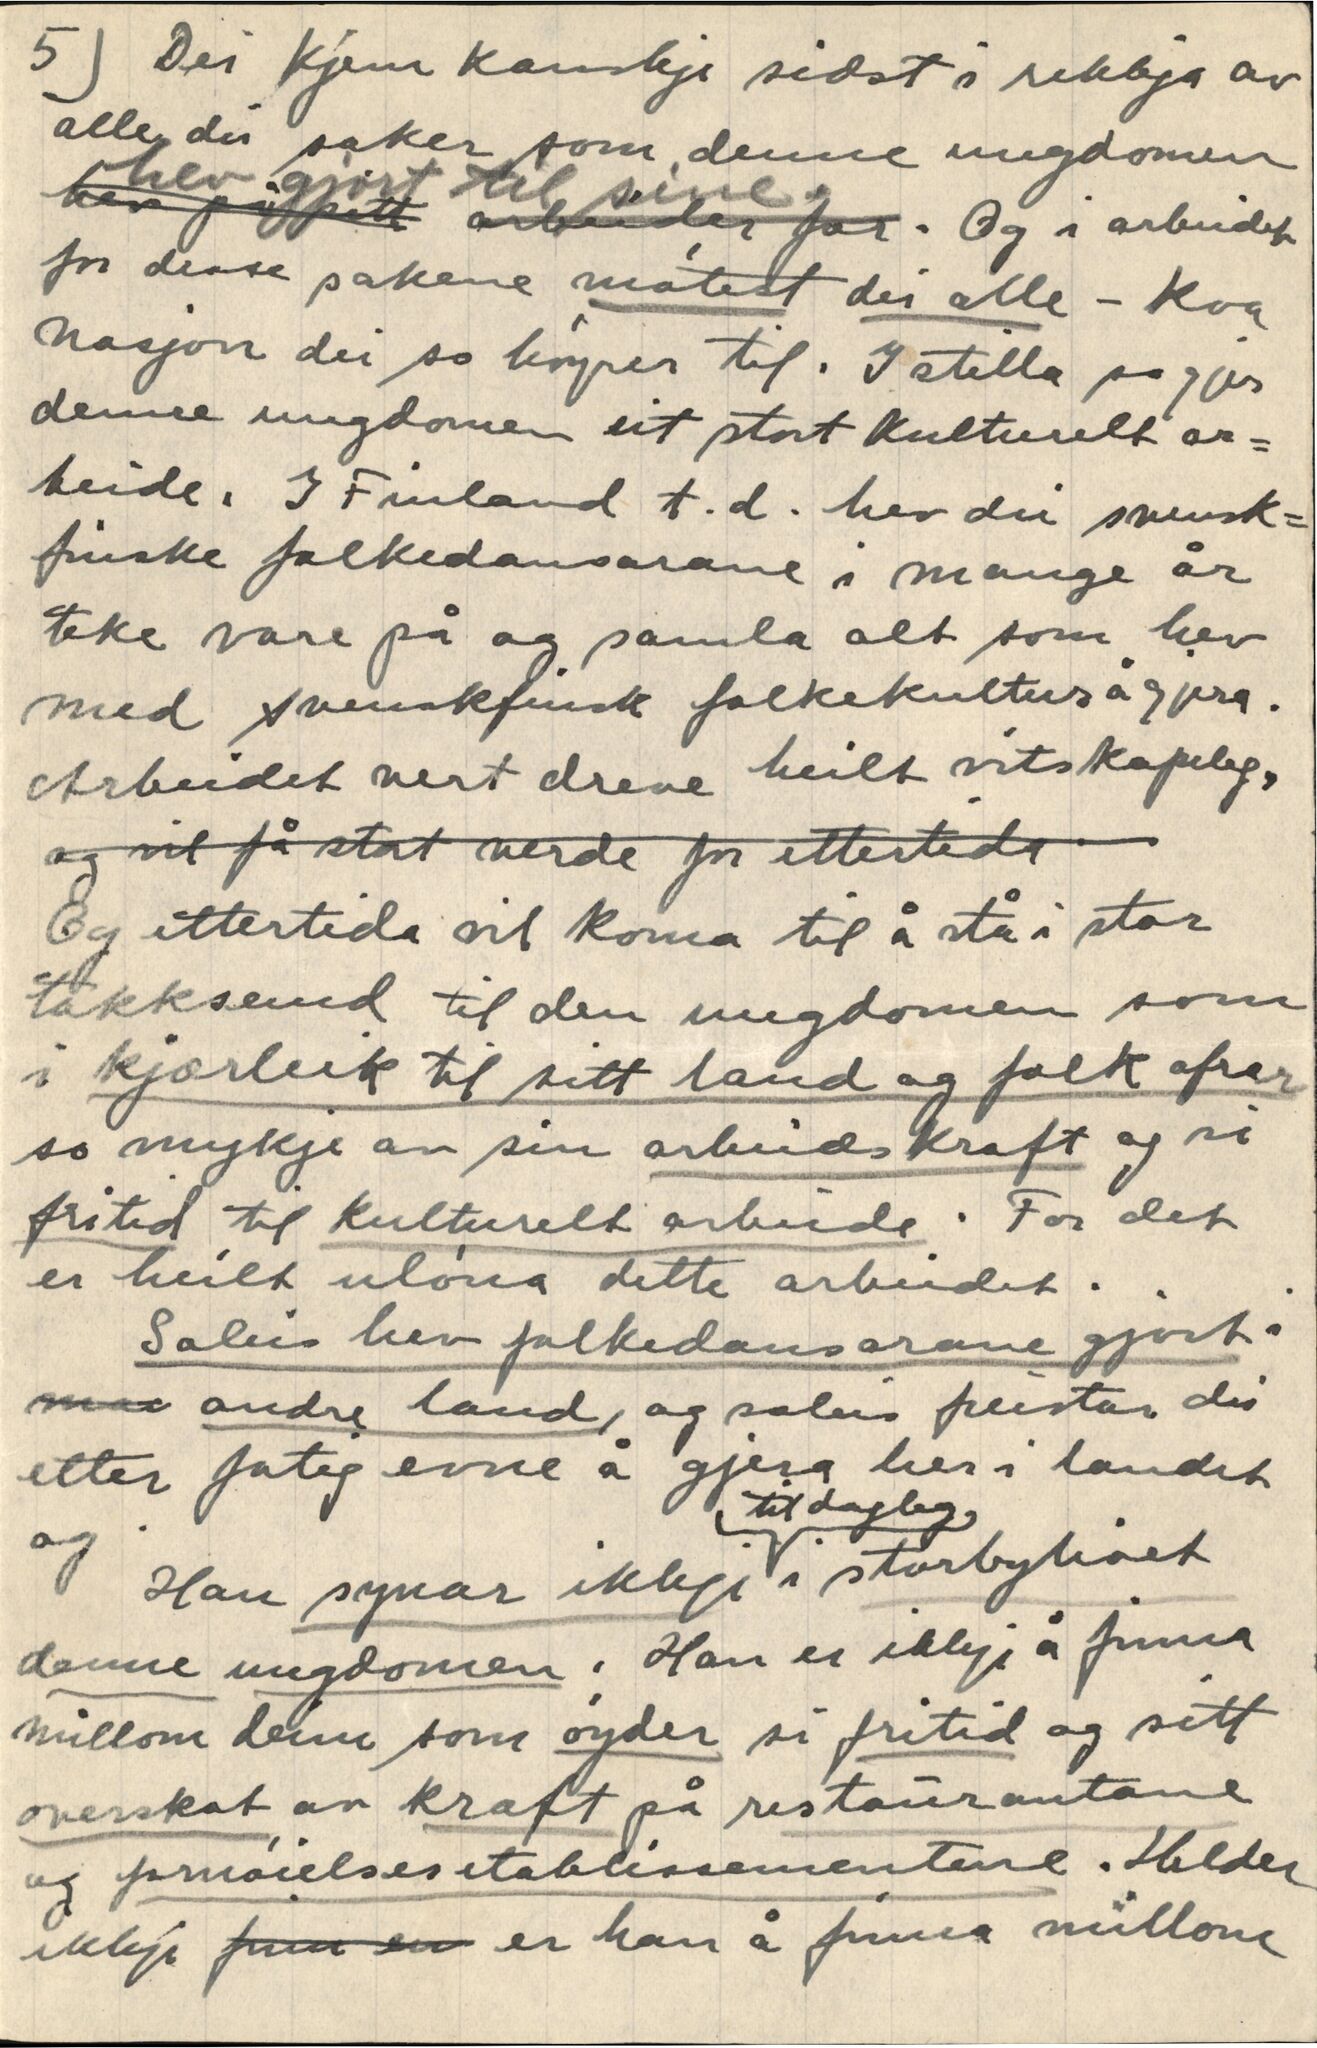 5) Dei kjem kanskje sidst i rekkja av
alle dei saker som denne ungdomen
hev gjort til sine.
hev på sitt arbeider for. Og i arbeidet
for desse sakene mötest dei alle - kva
nasjon dei so höyrer til. I stilla so gjer
denne ungdomen eit stort kulturelt ar=
beide. I Finland t.d. hev dei svensk=
finske folkedansarane i mange år
teke vare på og samla alt som hev
med svenskfinsk folkekultur å gjera.
Arbeidet vert dreve heilt vitskapeleg,
og vil få stort verde for ettertida
Og ettertida vil koma til å stå i stor
takksemd til den ungdomen som
i kjærleik til sitt land og folk ofrar
so mykje av sin arbeidskraft og si
fritid til kulturelt arbeide. For det
er heilt ulöna dette arbeidet.
Soleis hev folkedansarane gjort i
andre land, og soleis freistar dei
etter fatig evne å gjera her i landet
og
til dagleg
Han synar ikkje i storbylivet
denne ungdomen. Han er ikkje å finna
millom deim som öyder si fritid og sitt
overskot av kraft på restaurantane
og fornöielsesetablissementene. Helder
ikkje finn en er han å finna millom